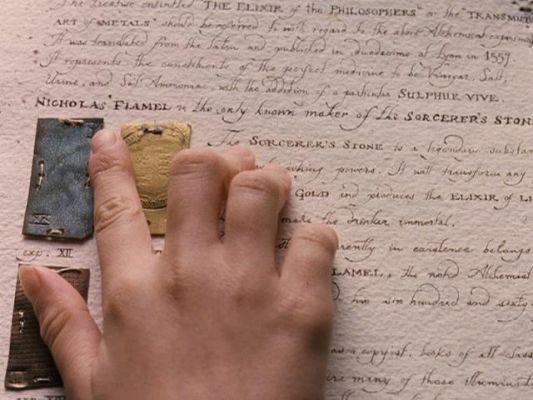 The treatise entitled "THE ELIXIR of the PHILOSOPHERS" or the "TRANSMUT
ART of METALS" should be referred to with regard to the above Alchemical
It was translated from the Latin and published in duodecimo at Lyon in 1557.
It represents the constituents of the perfect medicine to be Vinegar, Salt,
Urine, and Sal Ammoniac, with the addition of a particular SULPHUR VIVE.
NICHOLAS FLAMEL is the only known maker of the SORCERER'S STON
The SORCERER'S STONE is a legendary substan
powers. It will transform any
GOLD and produces the ELIXIR of LI
make the drinker immortal.
in existence belongs
LAMEL, the noted Alchemist
six hundred and sixty
as a copyist, books of all
many of those
XX
exp. XII